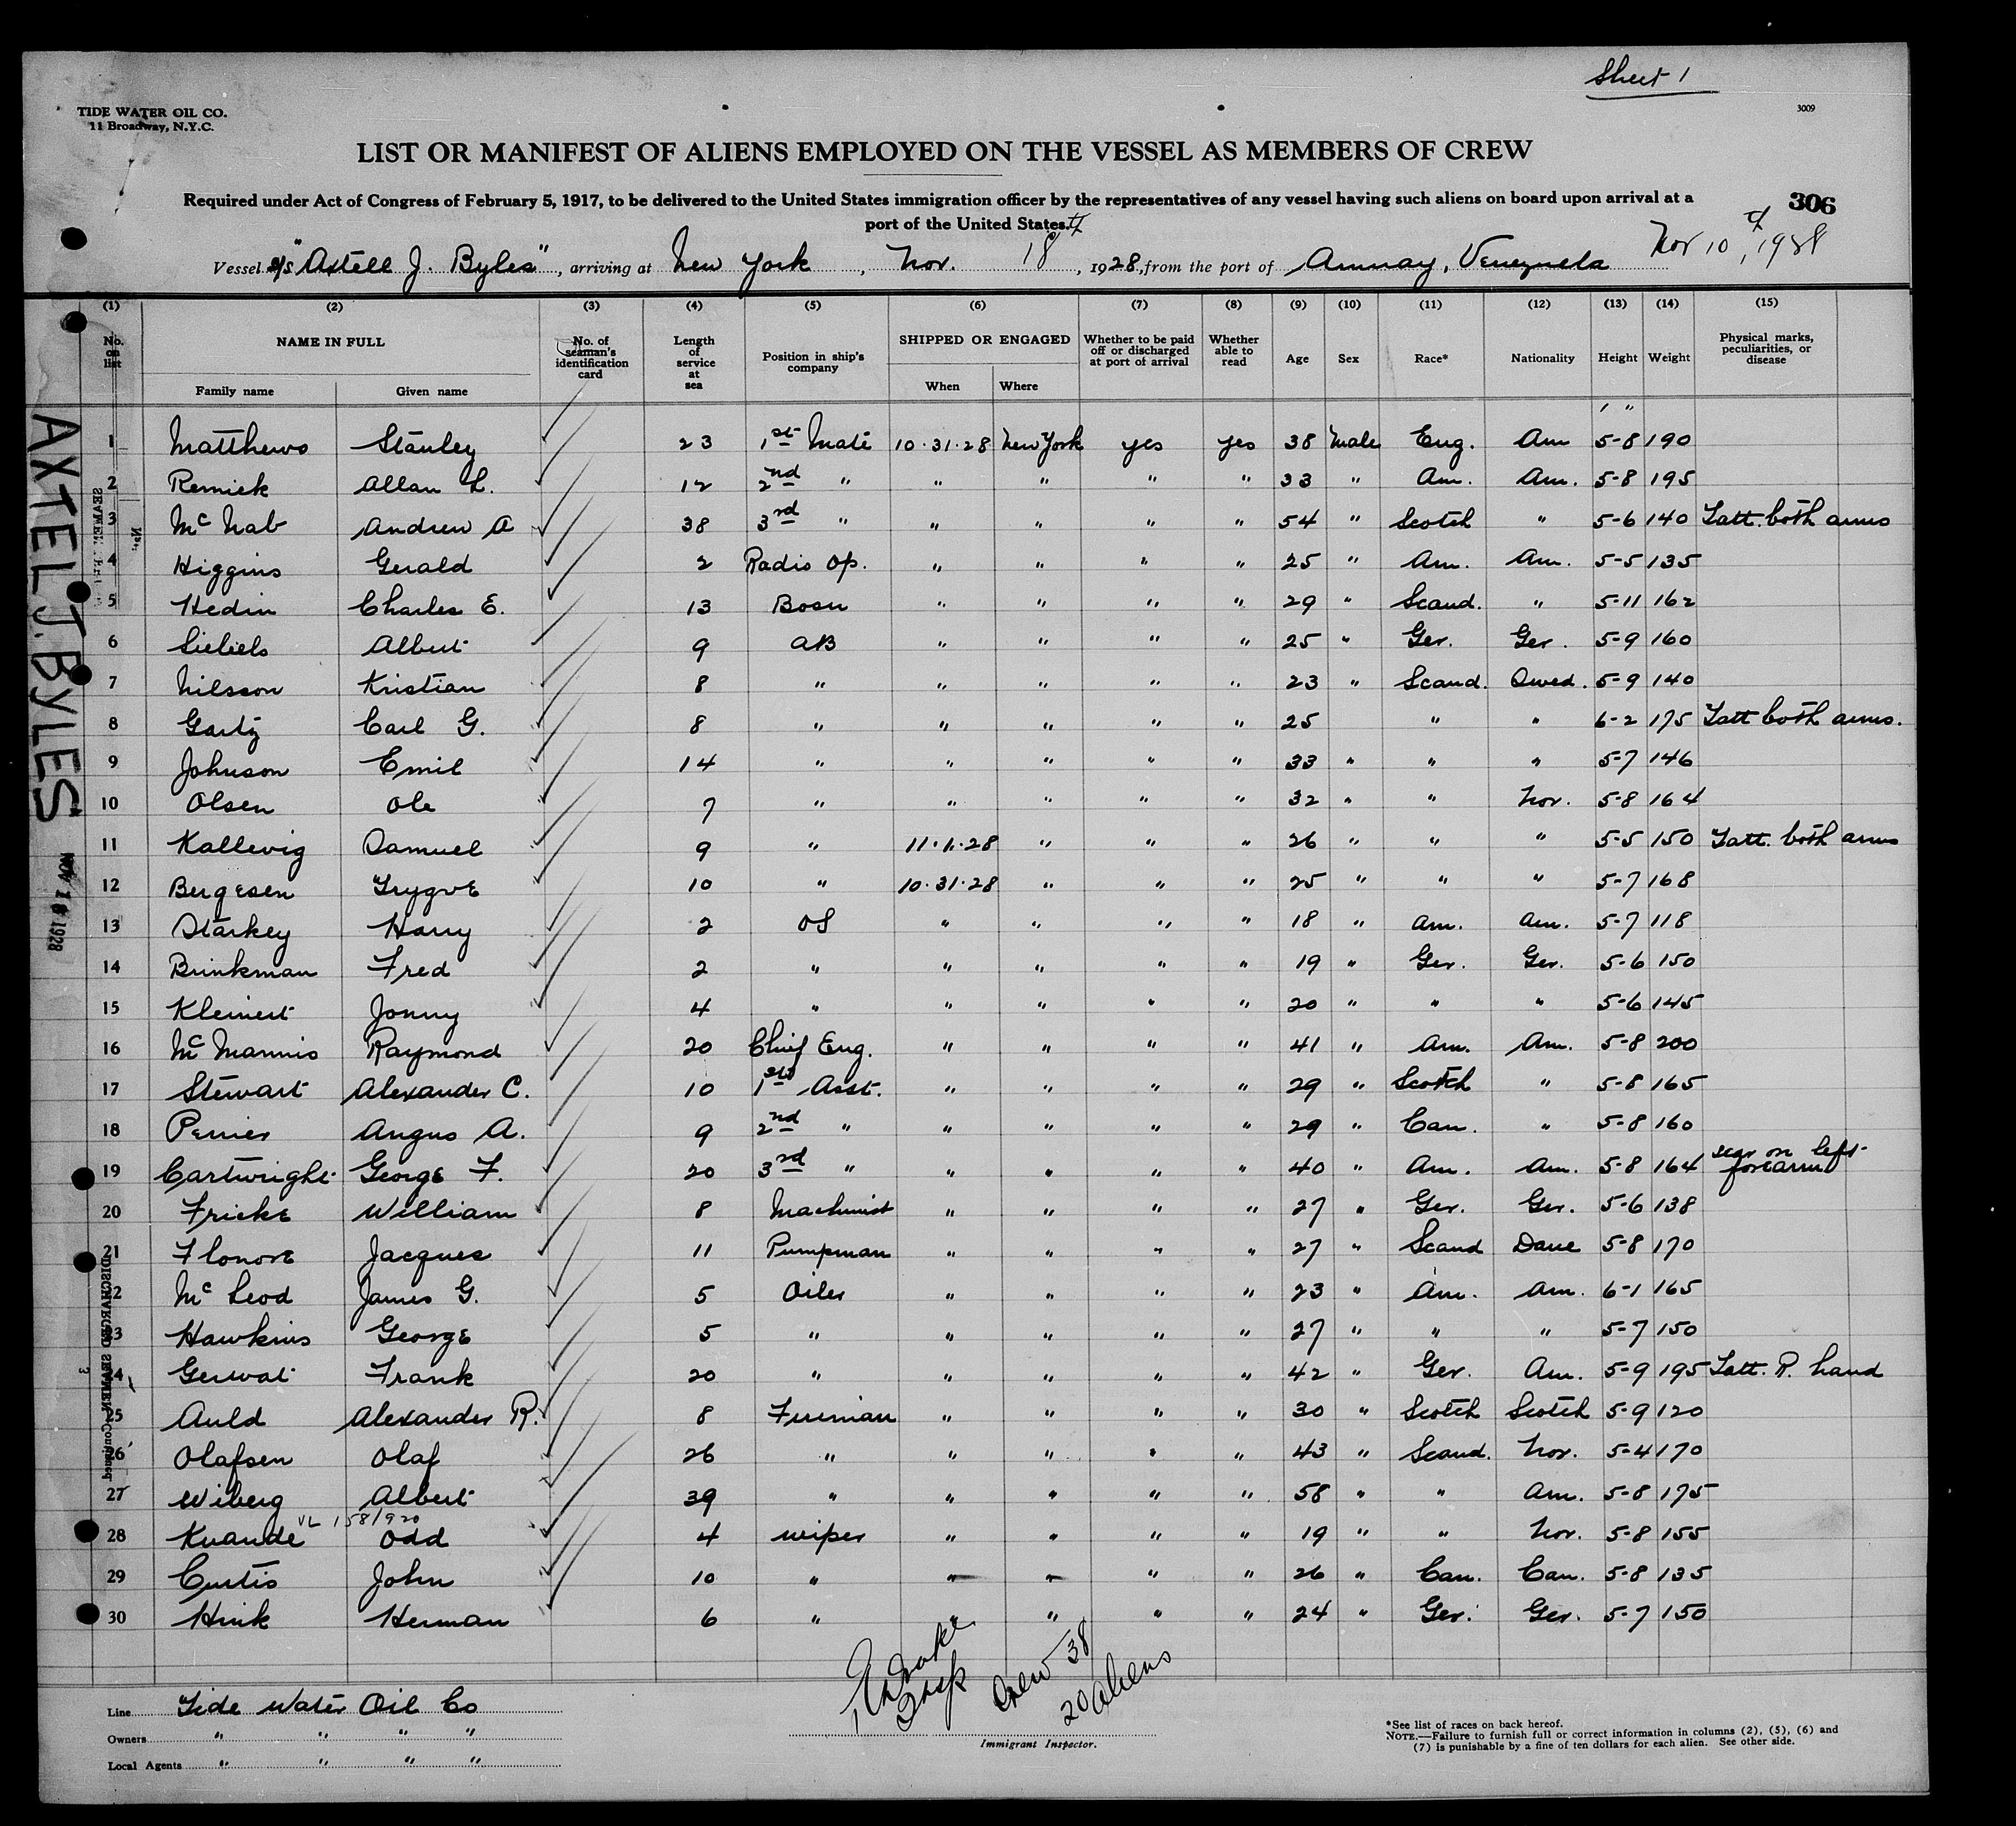 Sheet 1
TIDE WATER OIL CO.
11 Broadway, N.Y.C.
3009
LIST OR MANIFEST OF ALIENS EMPLOYED ON THE VESSEL AS MEMBERS OF CREW
Required under Act of Congress of February 5, 1917, to be delivered to the United States immigration officer by the representatives of any vessel having such aliens on board upon arrival at a
port of the United States.
306
Vessel s/s "Axtell J. Byles", arriving at New York, Nov. 18th, 1928, from the port of Amuay, Venezuela Nov 10th, 1928
(1) (2) (3) (4) (5) (6) (7) (8) (9) (10) (11) (12) (13) (14) (15)
No. on list NAME IN FULL No. of seaman's identification card Length of service at sea Position in ship's company SHIPPED OR ENGAGED Whether to be paid off or discharged at port of arrival Whether able to read Age Sex Race* Nationality Height Weight Physical marks, peculiarities, or disease
Family name Given name When Where
' "
1 Matthews Stanley 23 1st Mate 10.31.28 New York yes yes 38 Male Eng. Am 5-8 190
2 Remick Allan L. 12 2nd " " " " " 33 " Am. Am. 5-8 195
3 McNab Andrew A 38 3rd " " " " " 54 " Scotch " 5-6 140 Tatt. both arms
4 Higgins Gerald 2 Radio Op. " " " " 25 " Am. Am. 5-5 135
5 Hedin Charles E. 13 Bosn " " " " 29 " Scand. " 5-11 162
6 Albert 9 AB " " " " 25 " Ger. Ger. 5-9 160
7 Nilsson Kristian 8 " " " " " 23 " Scand. Swed. 5-9 140
8 Gartz Carl G. 8 " " " " " 25 " " 6-2 175 Tatt both arms.
9 Johnson Emil 14 " " " " " 33 " " " 5-7 146
10 Olsen Ole 7 " " " " " 32 " " Nor. 5-8 164
11 Kallevig Samuel 9 " 11.1.28 " " " 26 " " " 5-5 150 Tatt. both arms
12 Bergesen Trygve 10 " 10.31.28 " " " 25 " " " 5-7 168
13 Starkey Harry 2 OS " " " " 18 " Am. Am. 5-7 118
14 Brinkman Fred 2 " " " " " 19 " Ger. Ger. 5-6 150
15 Kleinert Jonny 4 " " " " " 20 " " " 5-6 145
16 McMannis Raymond 20 Chief Eng. " " " " 41 " Am. Am. 5-8 200
17 Stewart Alexander C. 10 1st Asst. " " " " 29 " Scotch " 5-8 165
18 Perrier Angus A. 9 2nd " " " " " 29 " Can. " 5-8 160
19 Cartwright George F. 20 3rd " " " " " 40 " Am. Am. 5-8 164 scar on left forearm
20 Fricke William 8 Machinist " " " " 27 " Ger. Ger. 5-6 138
21 Flonore Jacques 11 Pumpman " " " " 27 " Scand Dane 5-8 170
22 McLeod James G. 5 Oiler " " " " 23 " Am. Am. 6-1 165
23 Hawkins George 5 " " " " " 27 " " " 5-7 150
24 Gerwat Frank 20 " " " " " 42 " Ger. Am. 5-9 195 Tatt. R. hand
25 Auld Alexander R. 8 Fireman " " " " 30 " Scotch Scotch 5-9 120
26 Olafsen Olaf 26 " " " " " 43 " Scand. Nor. 5-4 170
27 Wiberg Albert 39 " " " " " 58 " " Am. 5-8 175
VL 158/920
28 Kvande Odd 4 wiper " " " " 19 " " Nor. 5-8 155
29 Curtis John 10 " " " " " 26 " Can. Can. 5-8 135
30 Hink Herman 6 " " " " " 24 " Ger. Ger. 5-7 150
AXTEL J. BYLES
NOV 18 1928
DISCHARGED SEAMEN Continued
3
Crew 38
20 Aliens
Line Tide Water Oil Co
Owners " " " "
Local Agents " " " "
Immigrant Inspector.
*See list of races on back hereof.
NOTE.—Failure to furnish full or correct information in columns (2), (5), (6) and
(7) is punishable by a fine of ten dollars for each alien. See other side.